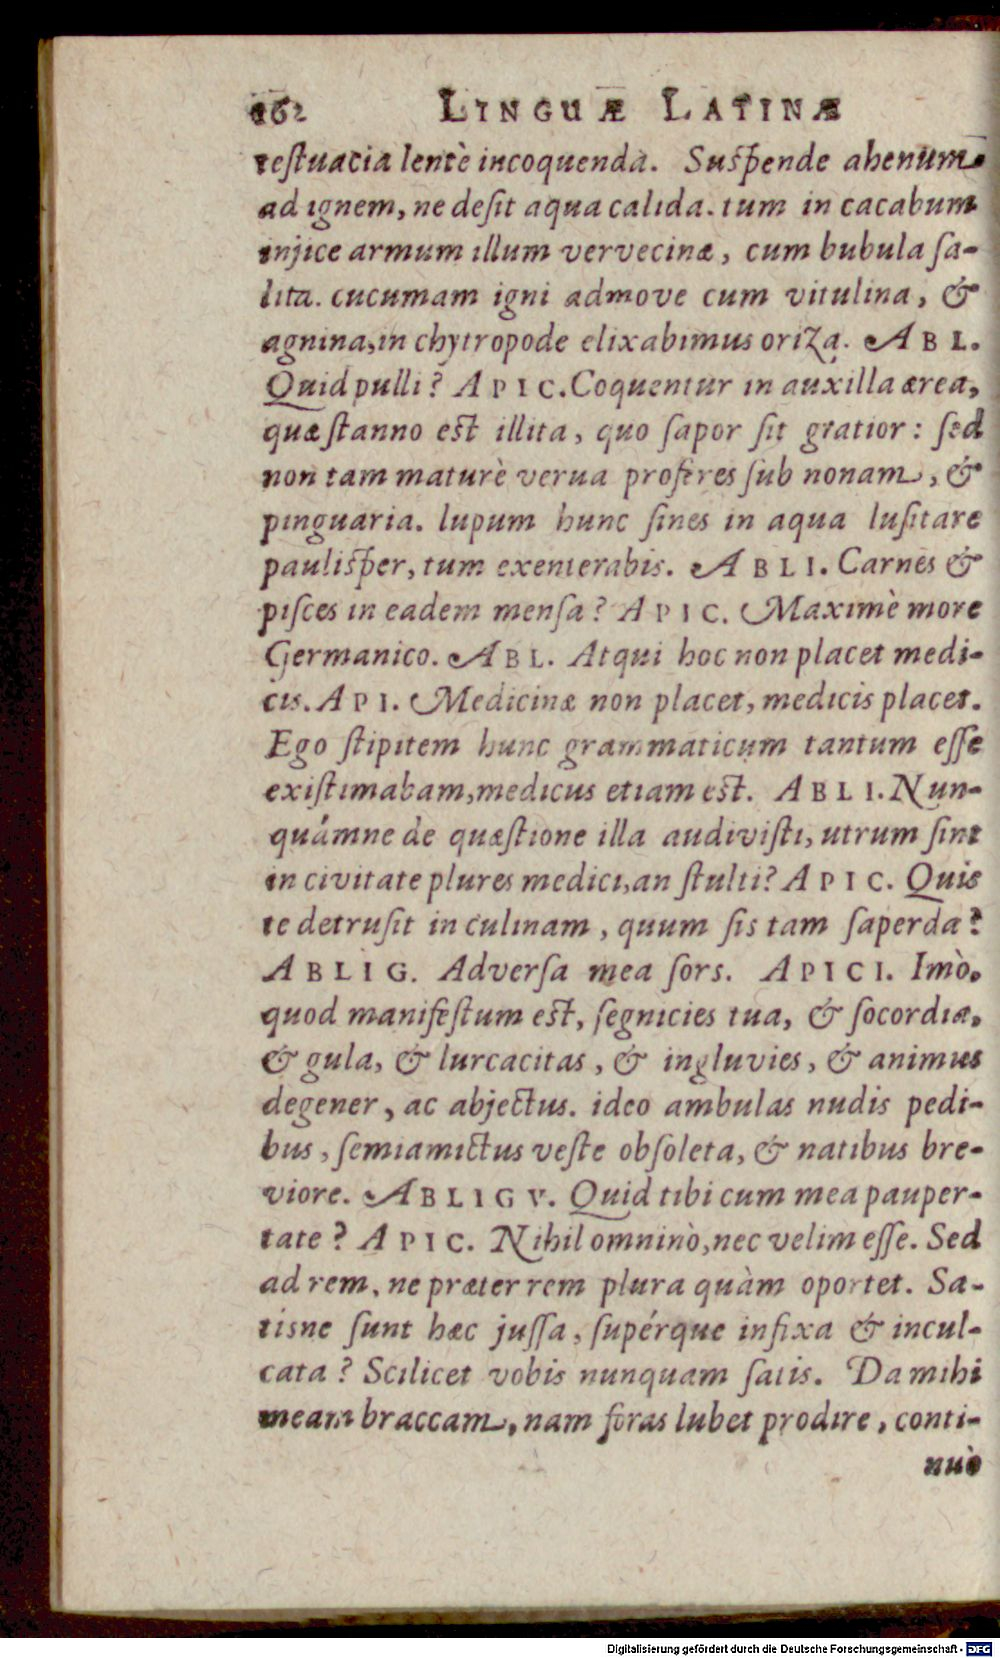 162 LINGUÆ LATINÆ
testuacia lentè incoquenda. Suſpende ahenum
ad ignem, ne deſit aqua calida. tum in cacabum
injice armum illum vervecinæ, cum bubula ſa-
lita. cucumam igni admove cum vitulina, &
agnina, in chytropode elixabimus oriza. ABL.
Quid pulli? APIC. Coquentur in auxilla ærea,
quæ ſtanno eſt illita, quo ſapor ſit gratior: ſed
non tam maturè verua proferes ſub nonam, &
pinguaria. lupum hunc ſines in aqua luſitare
pauliſper, tum exenterabis. ABLI. Carnes &
piſces in eadem menſa? APIC. Maximè more
Germanico. ABL. Atqui hoc non placet medi-
cis. API. Medicinæ non placet, medicis placet.
Ego ſtipitem hunc grammaticum tantum eſſe
exiſtimabam, medicus etiam eſt. ABLI. Nun-
quámne de quæſtione illa audiviſti, utrum ſint
in civitate plures medici, an ſtulti? APIC. Quis
te detruſit in culinam, quum ſis tam ſaperda?
ABLIG. Adverſa mea ſors. APICI. Imò,
quod manifeſtum eſt, ſegnicies tua, & ſocordia,
& gula, & lurcacitas, & ingluvies, & animus
degener, ac abjectus. ideo ambulas nudis pedi-
bus, ſemiamictus veſte obſoleta, & natibus bre-
viore. ABLIGV. Quid tibi cum mea pauper-
tate? APIC. Nihil omninò, nec velim eſſe. Sed
ad rem, ne præter rem plura quàm oportet. Sa-
tisne ſunt hæc juſſa, ſupérque infixa & incul-
cata? Scilicet vobis nunquam ſatis. Da mihi
meam braccam, nam foras lubet prodire, conti-
nuò
Digitalisierung gefördert durch die Deutsche Forschungsgemeinschaft - DFG